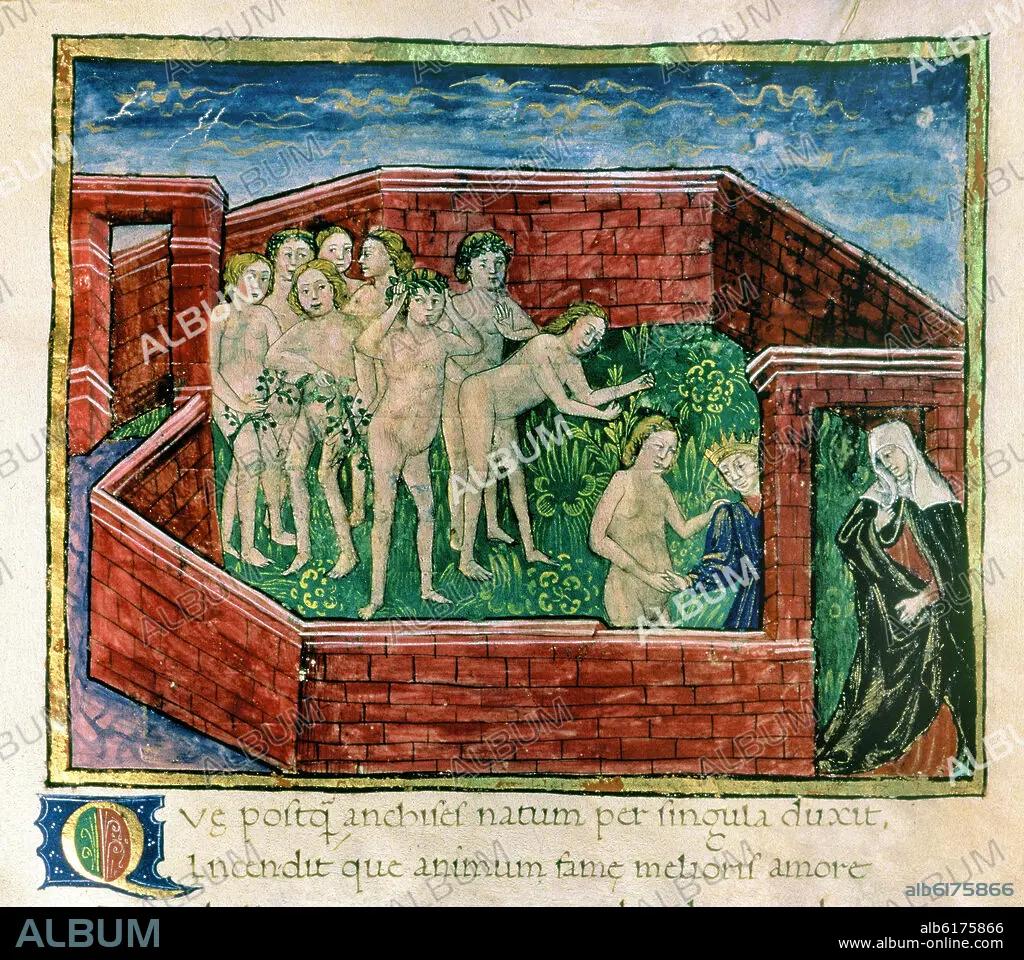 QVę postq̃ anchises natum per singula duxit,
Incendit que animum famę melioris amore
alb6175866
ALBUM
alb6175866
www.album-online.com